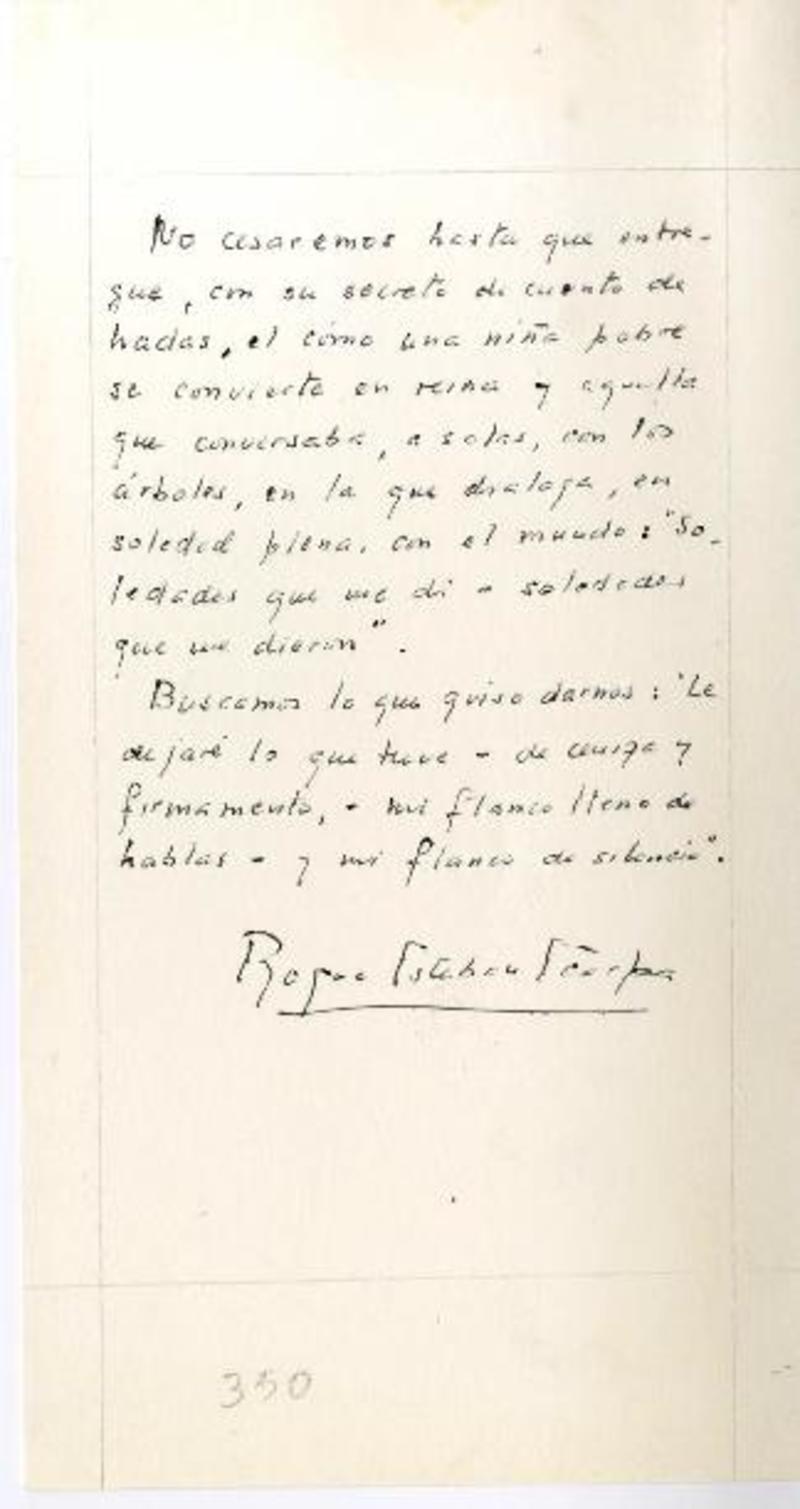 No cesaremos hasta que entre-
gue, con su secreto de cuento de
hadas, el cómo una niña pobre
se convierte en reina y aquella
que conversaba, a solas, con los
árboles, en la que dialoga, en
soledad plena, con el mundo: "So-
ledades que me di - soledades
que me dieron".
Buscamos lo que quiso darnos: "Le
dejaré lo que tuve - de ceniza y
firmamento, - mi flanco lleno de
hablas - y mi flanco de silencio".
Roque Esteban Scarpa
350